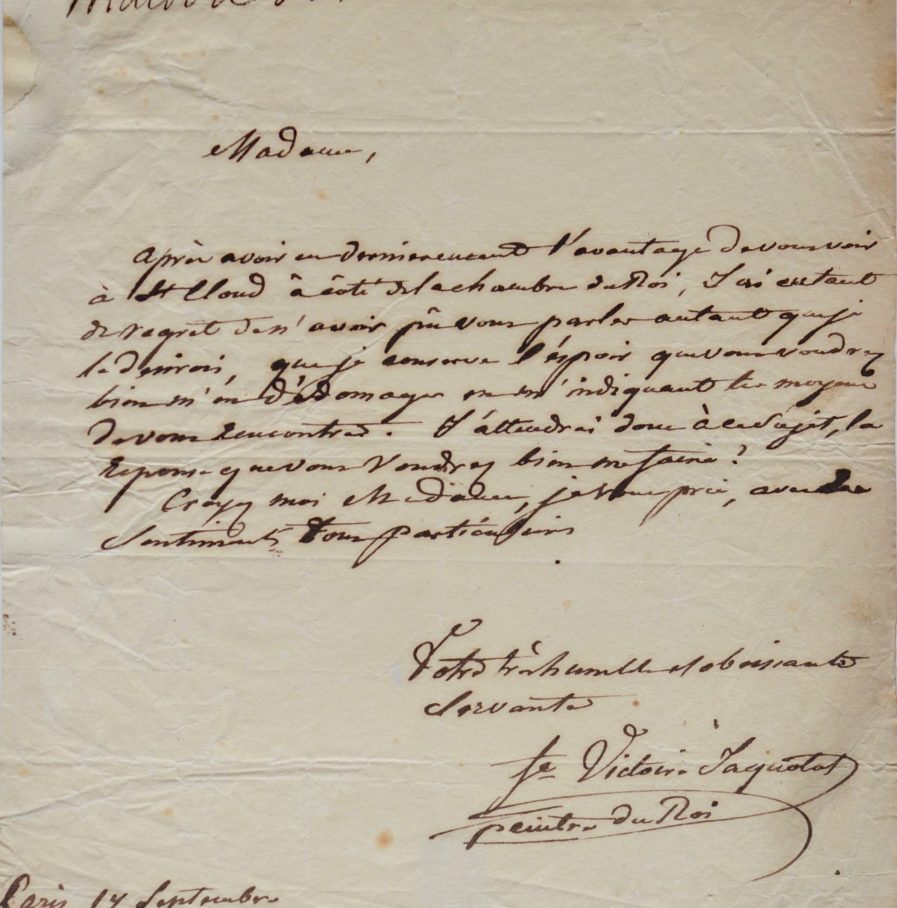 Madame,
après avoir eu dernierement l'avantage de vous voir
à St Cloud à côté de la chambre du Roi, J'ai eu tant
de regret de n'avoir pû vous parler autant que je
le desirois, que je conserve l'éspoir que vous voudrez
bien m'en dédomager en m'indiquant les moyens
de vous rencontrer. J'attendrai donc à ce sujet, la
reponse que vous voudrez bien me faire?
Croyez moi Madame, je vous prie, avec des
Sentiments tous particuliers
Votre très humble et obeissante
Servante
fe Victoire Jaquotot
peintre du Roi
Paris 17 Septembre